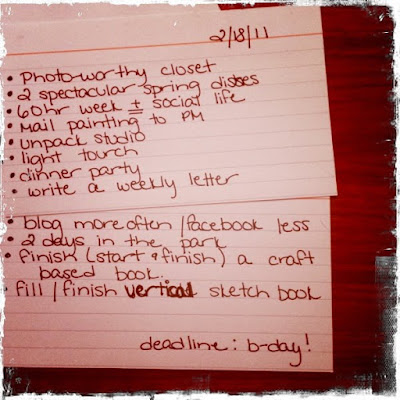 2/18/11
• Photo-worthy closet
• 2 spectacular spring dishes
• 60hr week ± social life
• Mail painting to PM
• unpack studio
• light touch
• dinner party
• write a weekly letter
• blog more often / facebook less
• 2 days in the park
• finish (start & finish) a craft
based book.
• fill / finish vertical sketch book
deadline: b-day!